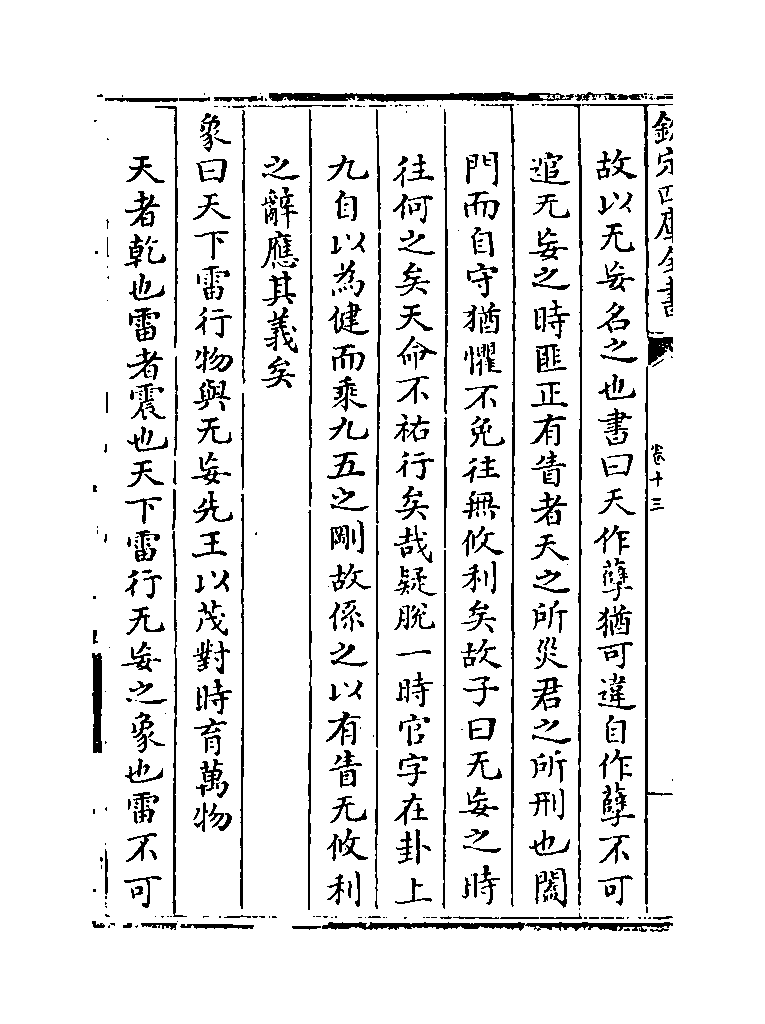 欽定四庫全書
卷十三
故以无妄名之也書曰天作孽猶可違自作孽不可
逭无妄之時匪正有眚者天之所災君之所刑也闔
門而自守猶懼不免往無攸利矣故子曰无妄之時
往何之矣天命不祐行矣哉疑脫一時官字在卦上
九自以為健而乘九五之剛故係之以有眚无攸利
之辭應其義矣
象曰天下雷行物與无妄先王以茂對時育萬物
天者乾也雷者震也天下雷行无妄之象也雷不可